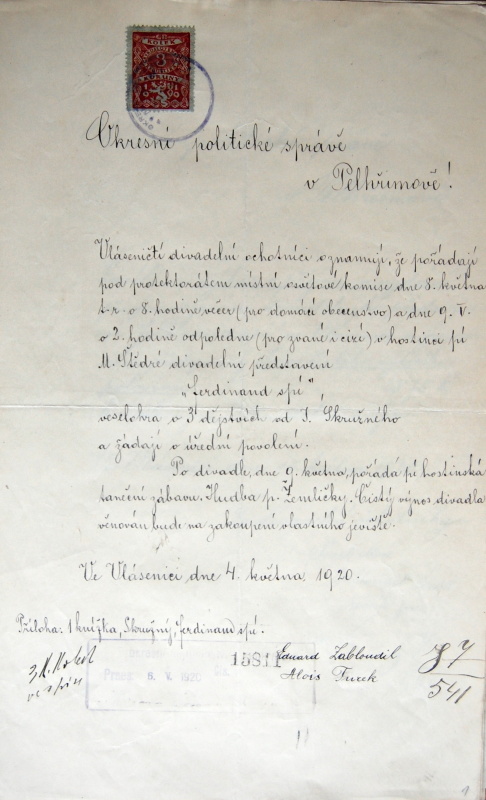 KOLEK
3
KORUNY
Okresní politické správě
v Pelhřimově!
Vlaseničtí divadelní ochotníci oznamují, že pořádají
pod protektorátem místní osvětové komise dne 8. května
t.r. o 8. hodině večer (pro domácí obecenstvo) a dne 9. V.
o 2. hodině odpoledne (pro zvané i cizí) v hostinci pí
M. Štědré divadelní představení
„Ferdinand spí",
veselohra o 3 dějstvích od I. Skružného
a žádají o úřední povolení.
Po divadle, dne 9. května, pořádá pí hostinská
taneční zábavu. Hudba p. Žemličky. Čistý výnos divadla
věnován bude na zakoupení vlastního jeviště.
Ve Vlásenici dne 4. května 1920.
Příloha: 1 knížka, Skružný, Ferdinand spí.
15811
Eduard Zabloudil
6. V. 1920
Alois Turek
541
1